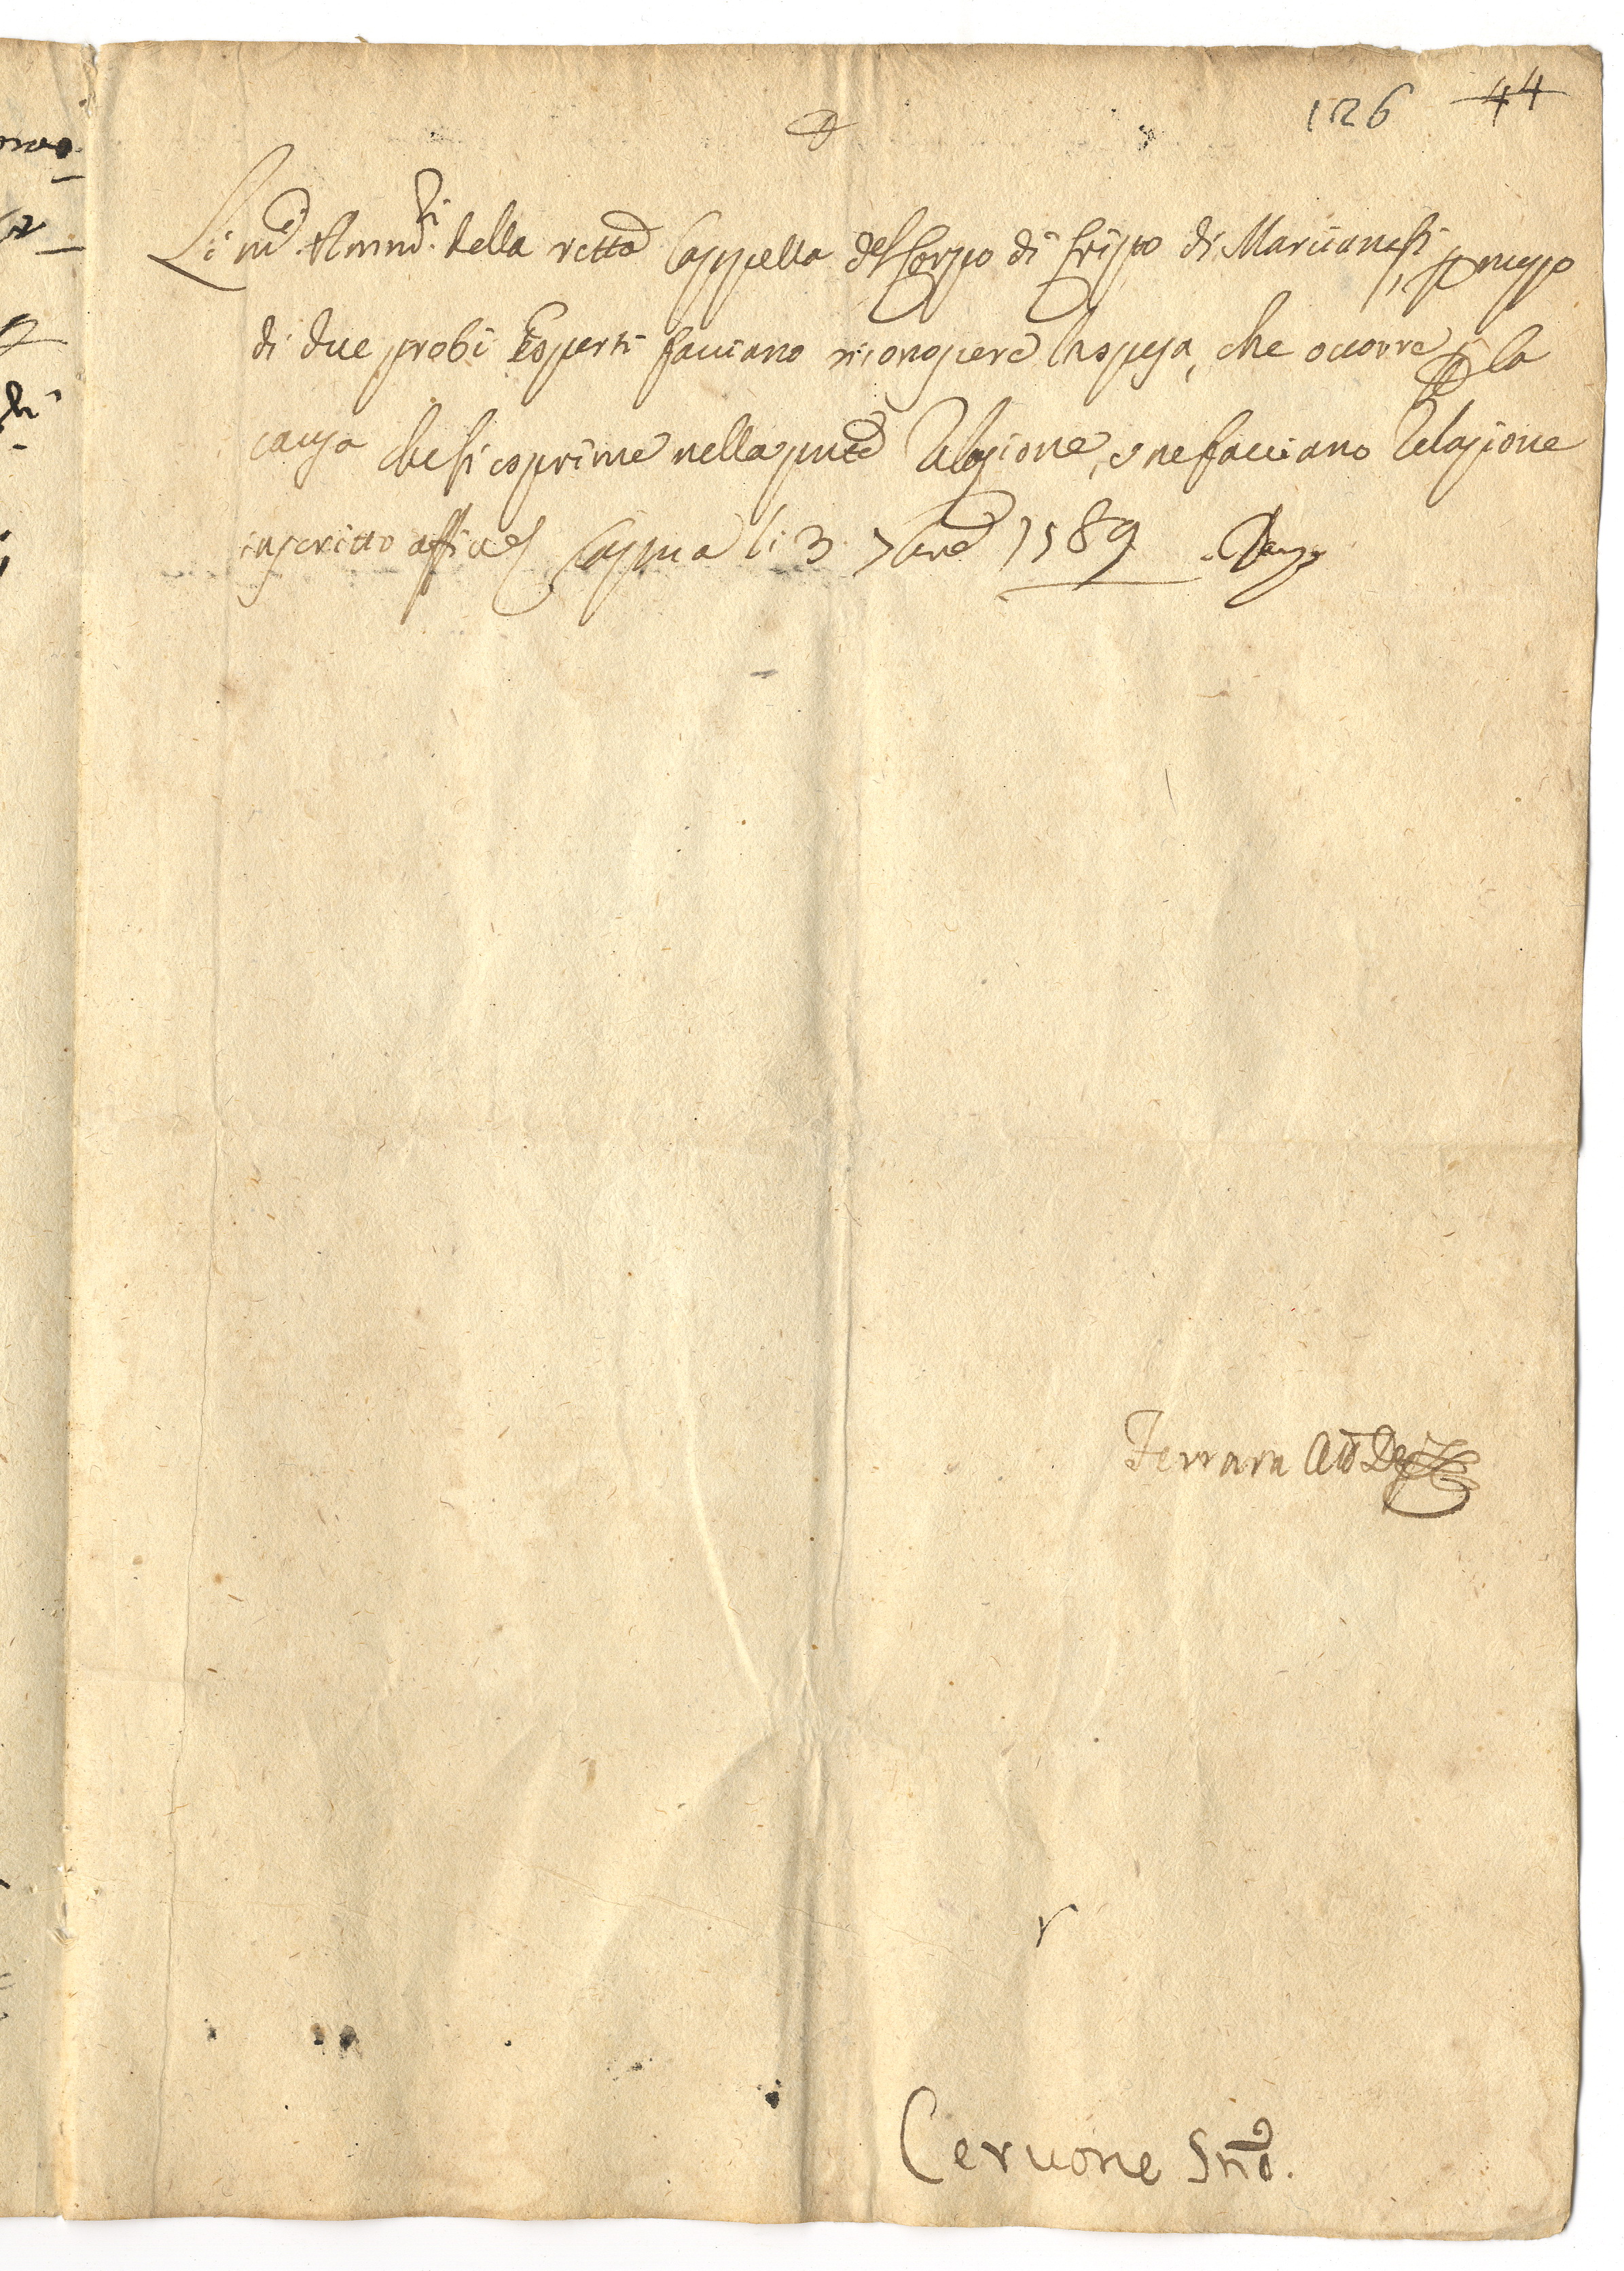 126 44
Li md. Ammri. della rettã Cappella del Corpo di Cristo di Marcianesi, p mezzo
di due probi Esperti facciano riconoscere la spesa, che occorre p la
causa che si esprime nella pnte Relazione, e ne facciano Relazione
inscritto affinc Capua li 3 1589
Ferrara
Ceruone Snd.